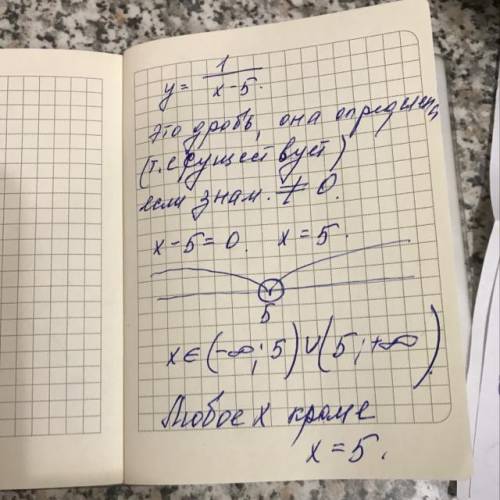 y = 1/(x-5).
Это дробь, она определена
(т.е существует)
если знам. ≠ 0.
x-5=0. x=5.
5
x∈(-∞;5)∪(5;+∞).
Любое x кроме
x=5.